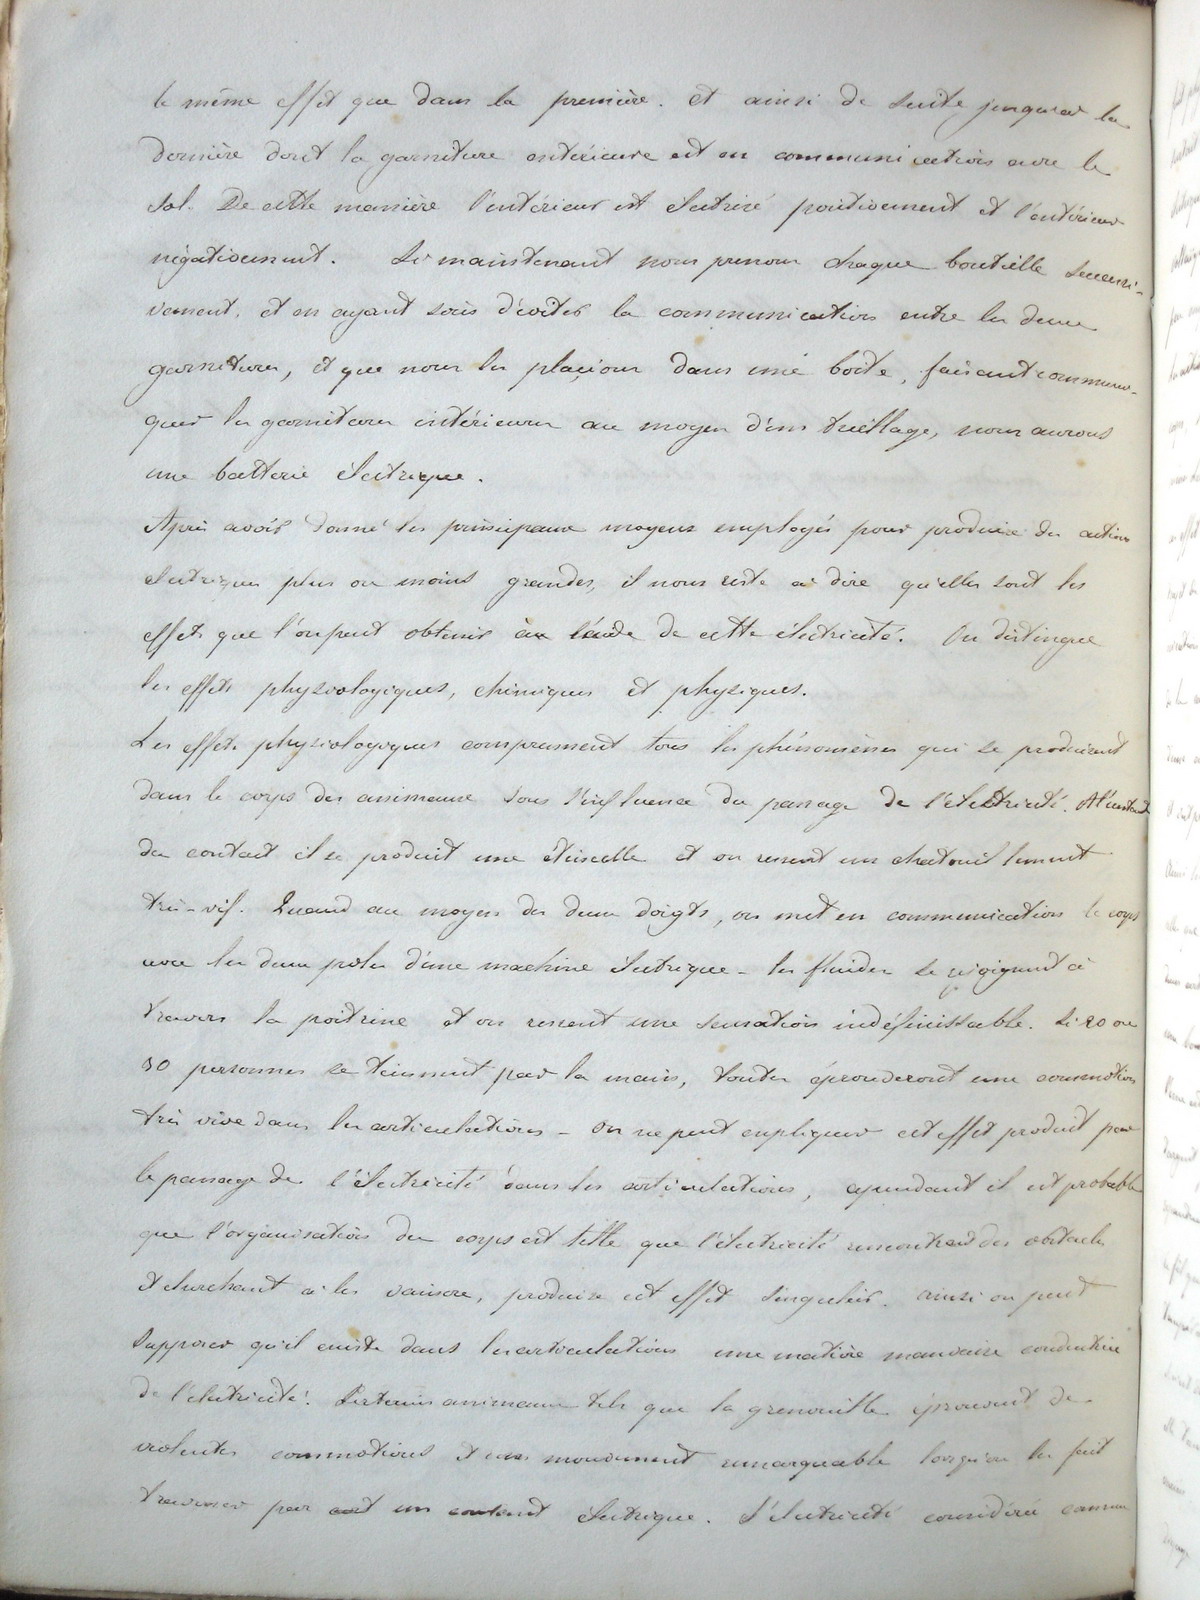 le même effet que dans la première. et ainsi de suite jusqu'à la
dernière dont la garniture extérieure est en communication avec le
sol. De cette manière l'intérieur est électrisé positivement et l'extérieur
négativement. Si maintenant nous prenons chaque bouteille successi-
vement, et en ayant soin d'éviter la communication entre les deux
garnitures, et que nous les plaçions dans une boite, faisant communi-
quer les garnitures intérieures au moyen d'un treillage, nous aurons
une batterie électrique.
Après avoir donné les principaux moyens employés pour produire des actions
électriques plus ou moins grandes, il nous reste à dire qu'elles sont les
effets que l'on peut obtenir à l'aide de cette électricité. On distingue
les effets physiologiques, chimiques et physiques.
Les effets physiologiques comprennent tous les phénomènes qui se produisent
dans le corps des animaux sous l'influence du passage de l'électricité. A l'instant
du contact il se produit une étincelle et on ressent un chatouillement
très-vif. Quand au moyen des deux doigts, on met en communication le corps
avec les deux poles d'une machine électrique - les fluides se rejoignent à
travers la poitrine et on ressent une sensation indéfinissable. Si 20 ou
30 personnes se tiennent par la main, toutes éprouveront une commotion
très vive dans les articulations - on ne peut expliquer cet effet produit par
le passage de l'électricité dans les articulations, cependant il est probable
que l'organisation du corps est telle que l'électricité rencontrant des obstacles
et cherchant à les vaincre, produise cet effet singulier. ainsi on peut
supposer qu'il existe dans les articulations une matière mauvaise conductrice
de l'électricité. Certains animaux tels que la grenouille éprouvent de
violentes commotions et un mouvement remarquable lorsqu'on les fait
traverser par un courant électrique. L'électricité considérée comme